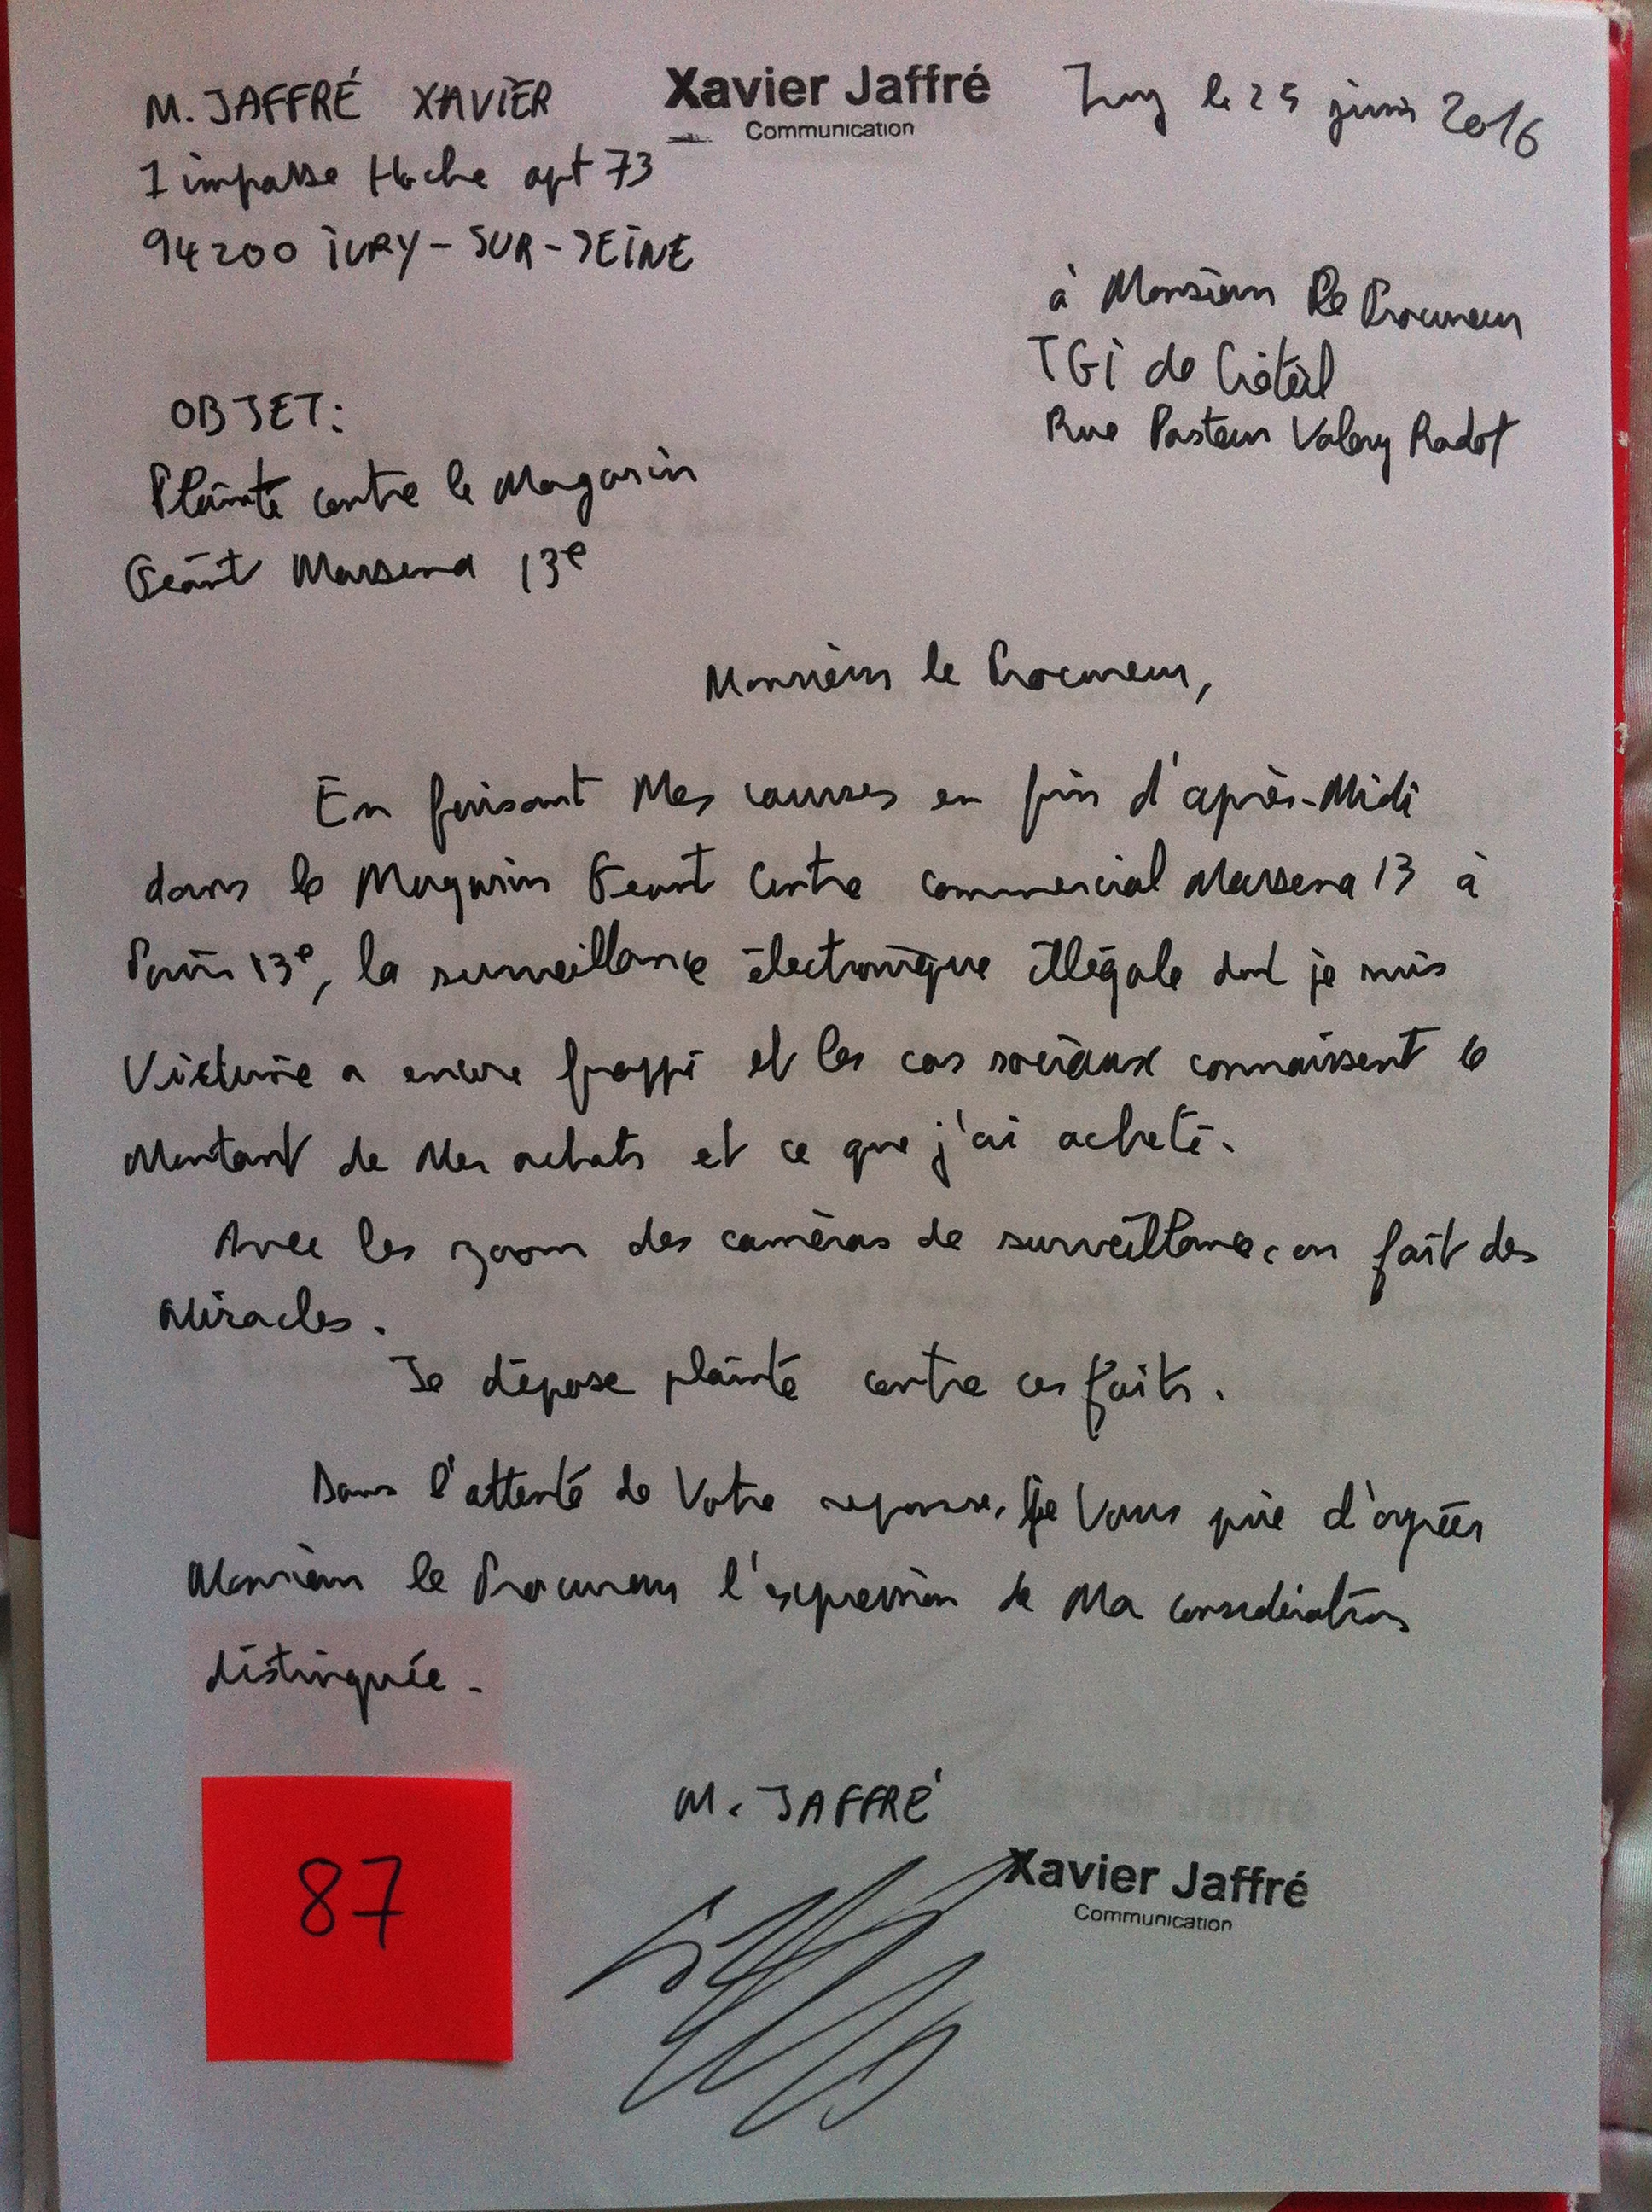 M. JAFFRÉ XAVIER
1 impasse Hoche apt 73
94200 IVRY-SUR-SEINE
Xavier Jaffré
Communication
Ivry le 25 juin 2016
à Monsieur le Procureur
TGI de Créteil
Rue Pasteur Valery Radot
OBJET:
Plainte contre le Magasin
Géant Massena 13e
Monsieur le Procureur,
En faisant Mes courses en fin d'après-Midi
dans le Magasin Geant Centre commercial Massena 13 à
Paris 13e, la surveillance électronique illégale dont je suis
Victime a encore frappé et les cas sociaux connaissent le
Montant de Mes achats et ce que j'ai acheté.
Avec les zoom des caméras de surveillance, on fait des
Miracles.
Je dépose plainte contre ces faits.
Dans l'attente de Votre reponse, je Vous prie d'agréer
Monsieur le Procureur l'expression de Ma considération
distinguée.
M. JAFFRÉ
Xavier Jaffré
Communication
87